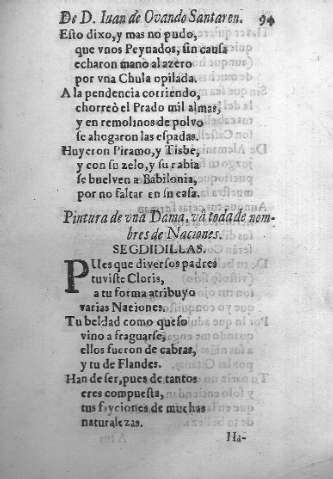 De D. Iuan de Ovando Santaren. 94
Esto dixo, y mas no pudo,
que vnos Peynados, sin causa
echaron mano al azero
por vna Chula opilada.
A la pendencia corriendo,
chorreò el Prado mil almas,
y en remolinos de polvo
se ahogaron las espadas.
Huyeron Piramo, y Tisbe,
y con su zelo, y su rabia
se buelven a Babilonia,
por no faltar en su casa.
Pintura de vna Dama, và toda de nom-
bres de Naciones.
SEGDIDILLAS.
PUes que diversos padres
tuviste Cloris,
a tu forma atribuyo
varias Naciones.
Tu beldad como queso
vino a fraguarse,
ellos fueron de cabras,
y tu de Flandes.
Han de ser, pues de tantos
eres compuesta,
tus facciones de muchas
naturalezas.
Ha-